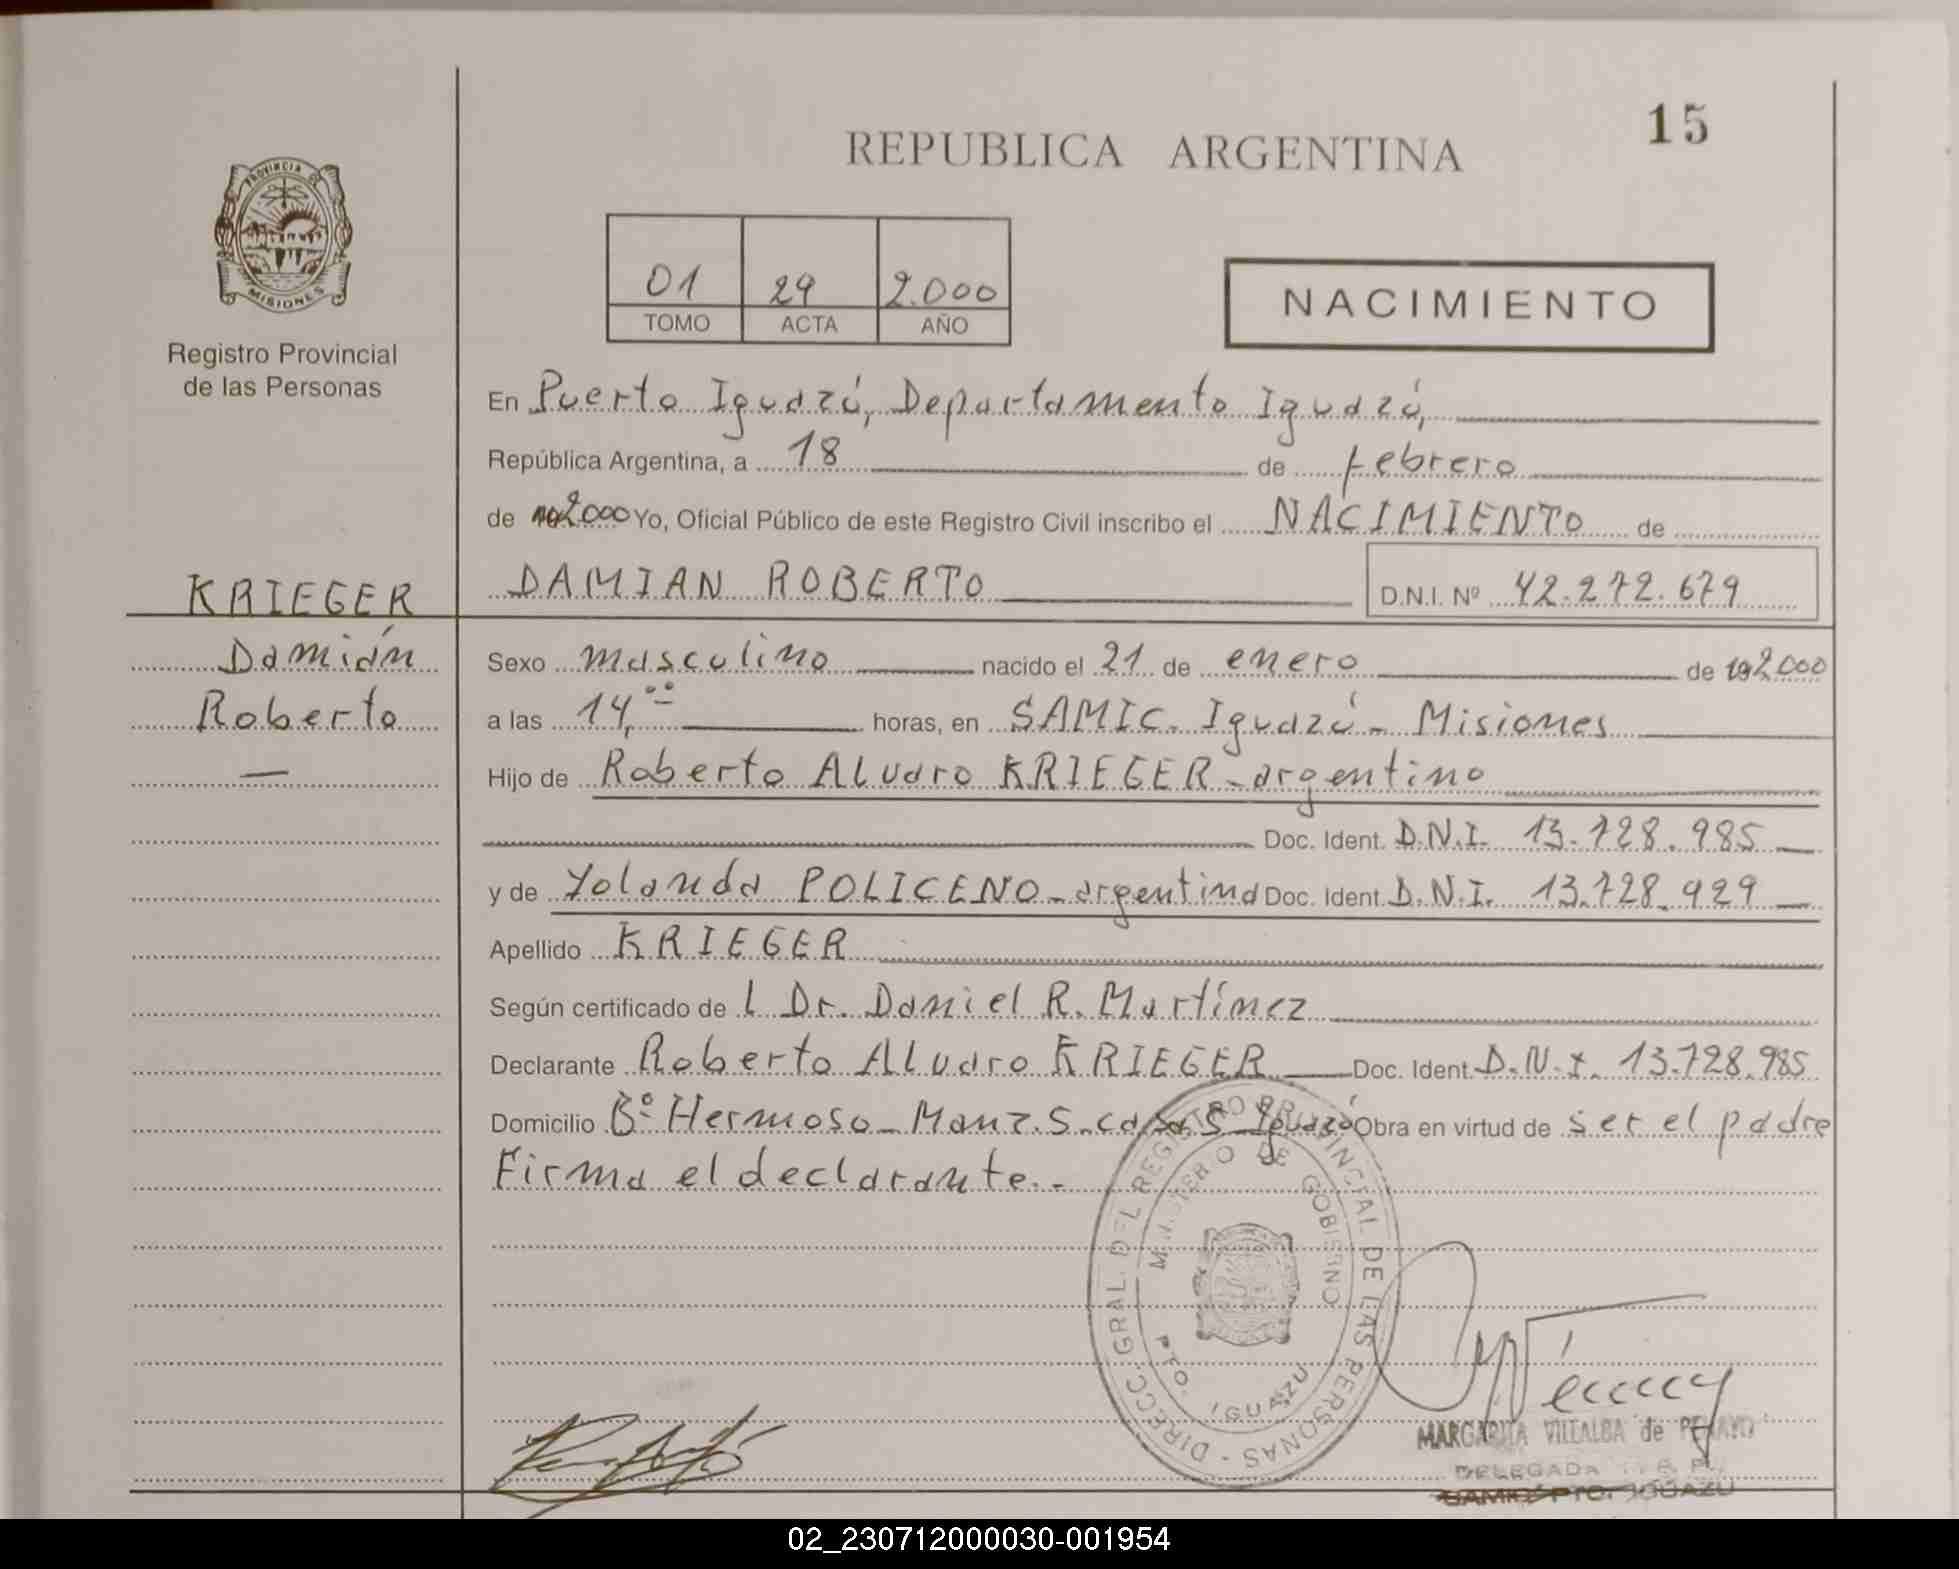 15
REPUBLICA ARGENTINA
PROVINCIA DE
MISIONES
Registro Provincial
de las Personas
01 29 2.000
TOMO ACTA AÑO
NACIMIENTO
En Puerto Iguazú, Departamento Iguazú,
República Argentina, a 18 de febrero
de 2000 Yo, Oficial Público de este Registro Civil inscribo el NACIMIENTO de
KRIEGER DAMIAN ROBERTO D.N.I. Nº 42.272.679
Damián Sexo masculino nacido el 21 de enero de 192000
Roberto a las 14,00 horas, en SAMIC. Iguazú - Misiones
Hijo de Roberto Alvaro KRIEGER - argentino
Doc. Ident. D.N.I. 13.728.985
y de Yolanda POLICENO - argentina Doc. Ident. D.N.I. 13.728.929
Apellido KRIEGER
Según certificado de l Dr. Daniel R. Martínez
Declarante Roberto Alvaro KRIEGER Doc. Ident. D.N.I. 13.728.985
Domicilio Bº Hermoso - Manz. 5 - casa 5 - Iguazú Obra en virtud de ser el padre
Firma el declarante.-
DIRECC. GRAL. DEL REGISTRO PROVINCIAL DE LAS PERSONAS -
MINISTERIO DE GOBIERNO
PTO. IGUAZU
MARGARITA VILLALBA de PENAYO
DELEGADA
SAMIC PTO. IGUAZU
02_230712000030-001954